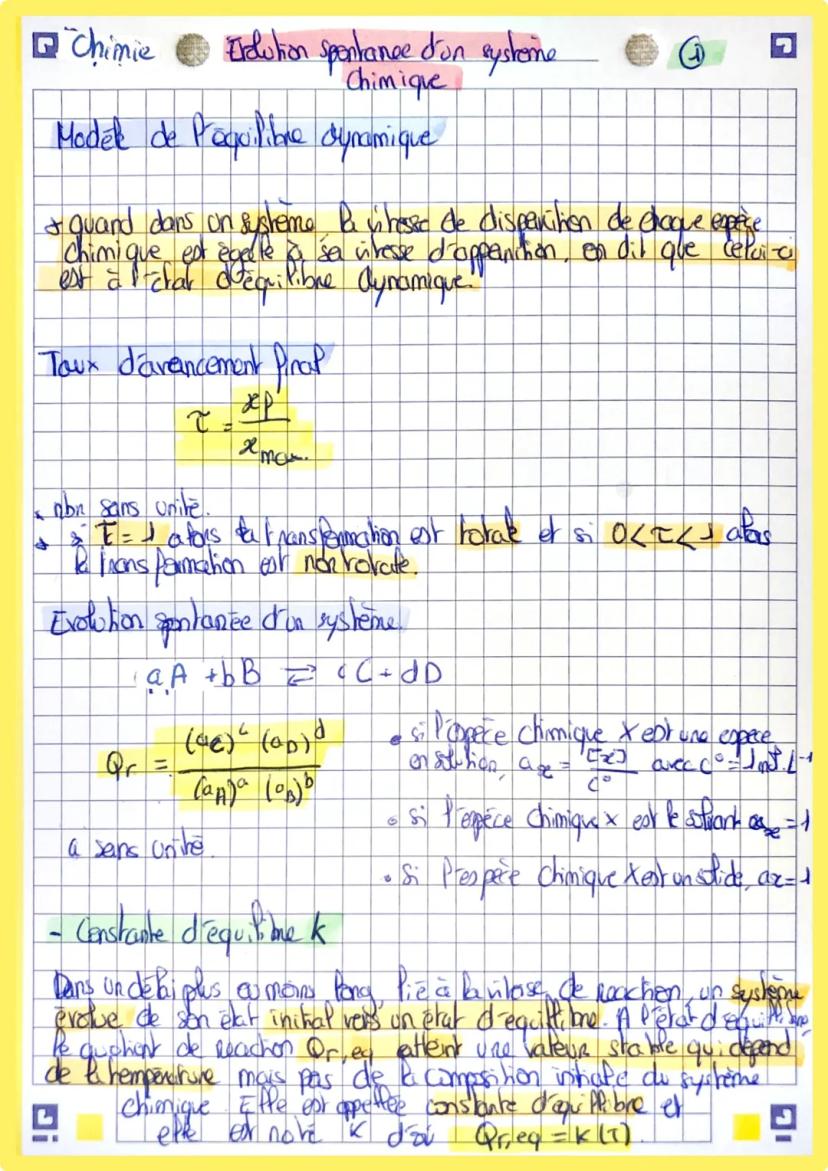 Chimie Evolution spontanée d'un système ①
chimique
Modèle de l'équilibre dynamique
quand dans un système la vitesse de disparition de chaque espèce
chimique est égale à sa vitesse d'apparition, on dit que celui-ci
est à l'état d'équilibre dynamique.
Taux d'avancement final
τ = xf / xmax.
nbr sans unité.
si τ = 1 alors la transformation est totale et si 0<τ<1 alors
la transformation est non totale.
Evolution spontanée d'un système.
aA + bB ⇌ cC + dD
Qr = (aC)^c (aD)^d / (aA)^a (aB)^b
a sans unité.
• si l'espèce chimique X est une espèce
en solution, ax = [X]/C° avec C° = 1mol.L⁻¹
• si l'espèce chimique X est le solvant ax = 1
• Si l'espèce chimique X est un solide, ax = 1
- Constante d'équilibre K
Dans un délai plus ou moins long, lié à la vitesse de réaction, un système
évolue de son état initial vers un état d'équilibre. A l'état d'équilibre,
le quotient de réaction Qr,eq atteint une valeur stable qui dépend
de la température mais pas de la composition initiale du système
chimique. Elle est appellée constante d'équilibre et
elle est noté K d'où Qr,eq = K(T).